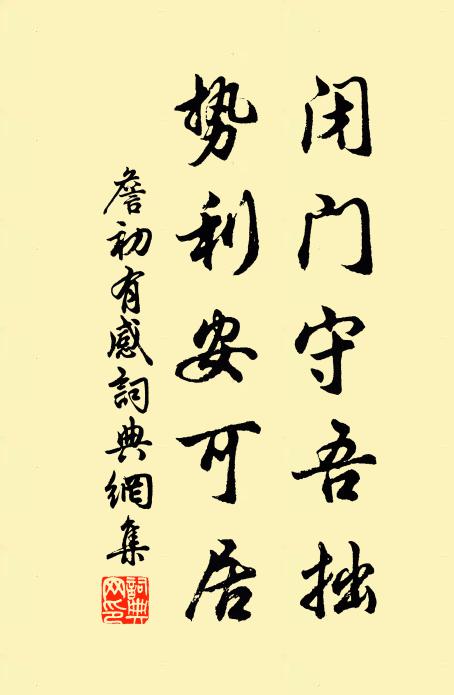 闭门守吾拙
势利安可居
詹初有感詞典網集
詞典网印